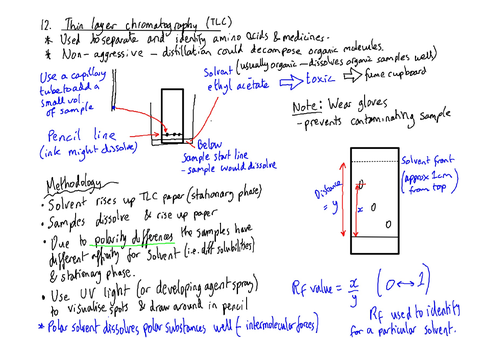 12. Thin layer chromatography (TLC)
* Used to separate and identify amino acids & medicines.
* Non-aggressive - distillation could decompose organic molecules.
Use a capillary
tube to add a
small vol.
of sample
Solvent (usually organic - dissolves organic samples well)
ethyl acetate → toxic → fume cupboard
Note: Wear gloves
- prevents contaminating sample
Pencil line
(ink might dissolve)
Below
sample start line
- sample would dissolve
Methodology
• Solvent rises up TLC paper (stationary phase)
• Samples dissolve & rise up paper
• Due to polarity differences the samples have
different affinity for solvent (i.e. diff solubilities)
& stationary phase.
• Use UV light (or developing agent spray)
to visualise spots & draw around in pencil
* Polar solvent dissolves polar substances well (intermolecular forces)
Solvent front
(approx 1cm
from top)
Distance
= y
x
Rf value = x/y (0 ↔ 1)
Rf used to identify
for a particular solvent.